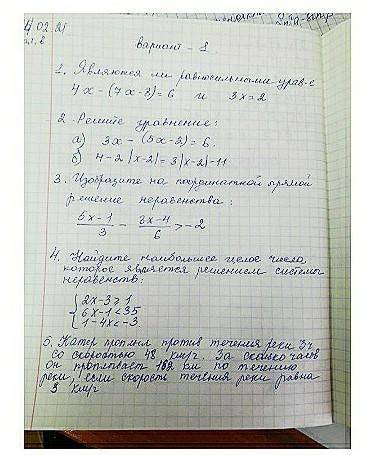 02.21
Вариант - 1
1. Являются ли равносильными урав-е
4x - (7x-8) = 6 и 3x = 2
2. Решите уравнение:
а) 3x - (5x-2) = 6.
б) 4-2|x-2| = 3|x-2|-11
3. Изобразите на координатной прямой
решение неравенства:
5x-1/3 - 3x-4/6 > -2
4. Найдите наибольшее целое число,
которое является решением системы
неравенств:
2x-3≥1
6x-1<35
1-4x<-3
5. Катер проплыл против течения реки 3ч
со скоростью 48 км/ч. За сколько часов
он проплывает 162 км по течению
реки, если скорость течения реки равна
3 км/ч